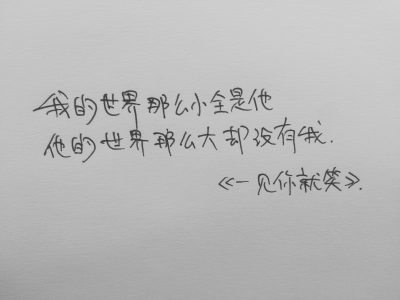 我的世界那么小全是他
他的世界那么大却没有我.
《一见你就笑》.